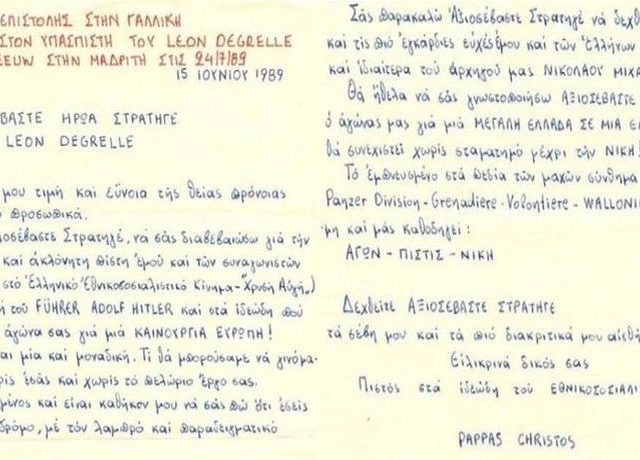 ΕΠΙΣΤΟΛΗΣ ΣΤΗΝ ΓΑΛΛΙΚΗ
ΣΤΟΝ ΥΠΑΣΠΙΣΤΗ ΤΟΥ LEON DEGRELLE
ΣΤΗΝ ΜΑΔΡΙΤΗ ΣΤΙΣ 24/7/89
15 ΙΟΥΝΙΟΥ 1989
ΗΡΩΑ ΣΤΡΑΤΗΓΕ
LEON DEGRELLE
μου τιμή καί εὔνοια τῆς θείας πρόνοιας
προσωπικά.
Στρατηγέ, νά σᾶς διαβεβαιώσω γιά τήν
καί ἀκλόνητη πίστη ἐμοῦ καί τῶν συναγωνιστῶν
στό Ἑλληνικό Ἐθνικοσοσιαλιστικό Κίνημα-Χρυσή Αὐγή,)
τοῦ FÜHRER ADOLF HITLER καί στά ἰδεώδη πού
ἀγώνα σας γιά μιά ΚΑΙΝΟΥΡΓΙΑ ΕΥΡΩΠΗ!
μία καί μοναδική. Τί θά μπορούσαμε νά γινόμα-
ἐσᾶς καί χωρίς τό πελώριο ἔργο σας.
καί εἶναι καθῆκον μου νά σᾶς πῶ ὅτι ἐσεῖς
μέ τόν λαμπρό καί παραδειγματικό
Σᾶς παρακαλῶ Ἀξιοσέβαστε Στρατηγέ νά δεχθ
καί τίς πιό ἐγκάρδιες εὐχές ἐμοῦ καί τῶν Ἑλλήνων
καί ἰδιαίτερα τοῦ ἀρχηγοῦ μας ΝΙΚΟΛΑΟΥ ΜΙΧΑ
Θά ἤθελα νά σᾶς γνωστοποιήσω ΑΞΙΟΣΕΒΑΣΤΕ
ὁ ἀγώνας μας γιά μιά ΜΕΓΑΛΗ ΕΛΛΑΔΑ ΣΕ ΜΙΑ Ε
θά συνεχιστεῖ χωρίς σταματημό μέχρι τήν ΝΙΚΗ!
Τό ἐμπνευσμένο στά πεδία τῶν μαχῶν σύνθημα
Panzer Division-Grenadiere-Volontiere-WALLONI
μη καί μᾶς καθοδηγεῖ:
ΑΓΩΝ - ΠΙΣΤΙΣ - ΝΙΚΗ
Δεχθεῖτε ΑΞΙΟΣΕΒΑΣΤΕ ΣΤΡΑΤΗΓΕ
τά σέβη μου καί τά πιό διακριτικά μου αἰσθή
Εἰλικρινά δικός σας
Πιστός στά ἰδεώδη τοῦ ΕΘΝΙΚΟΣΟΣΙΑΛΙ
PAPPAS CHRISTOS